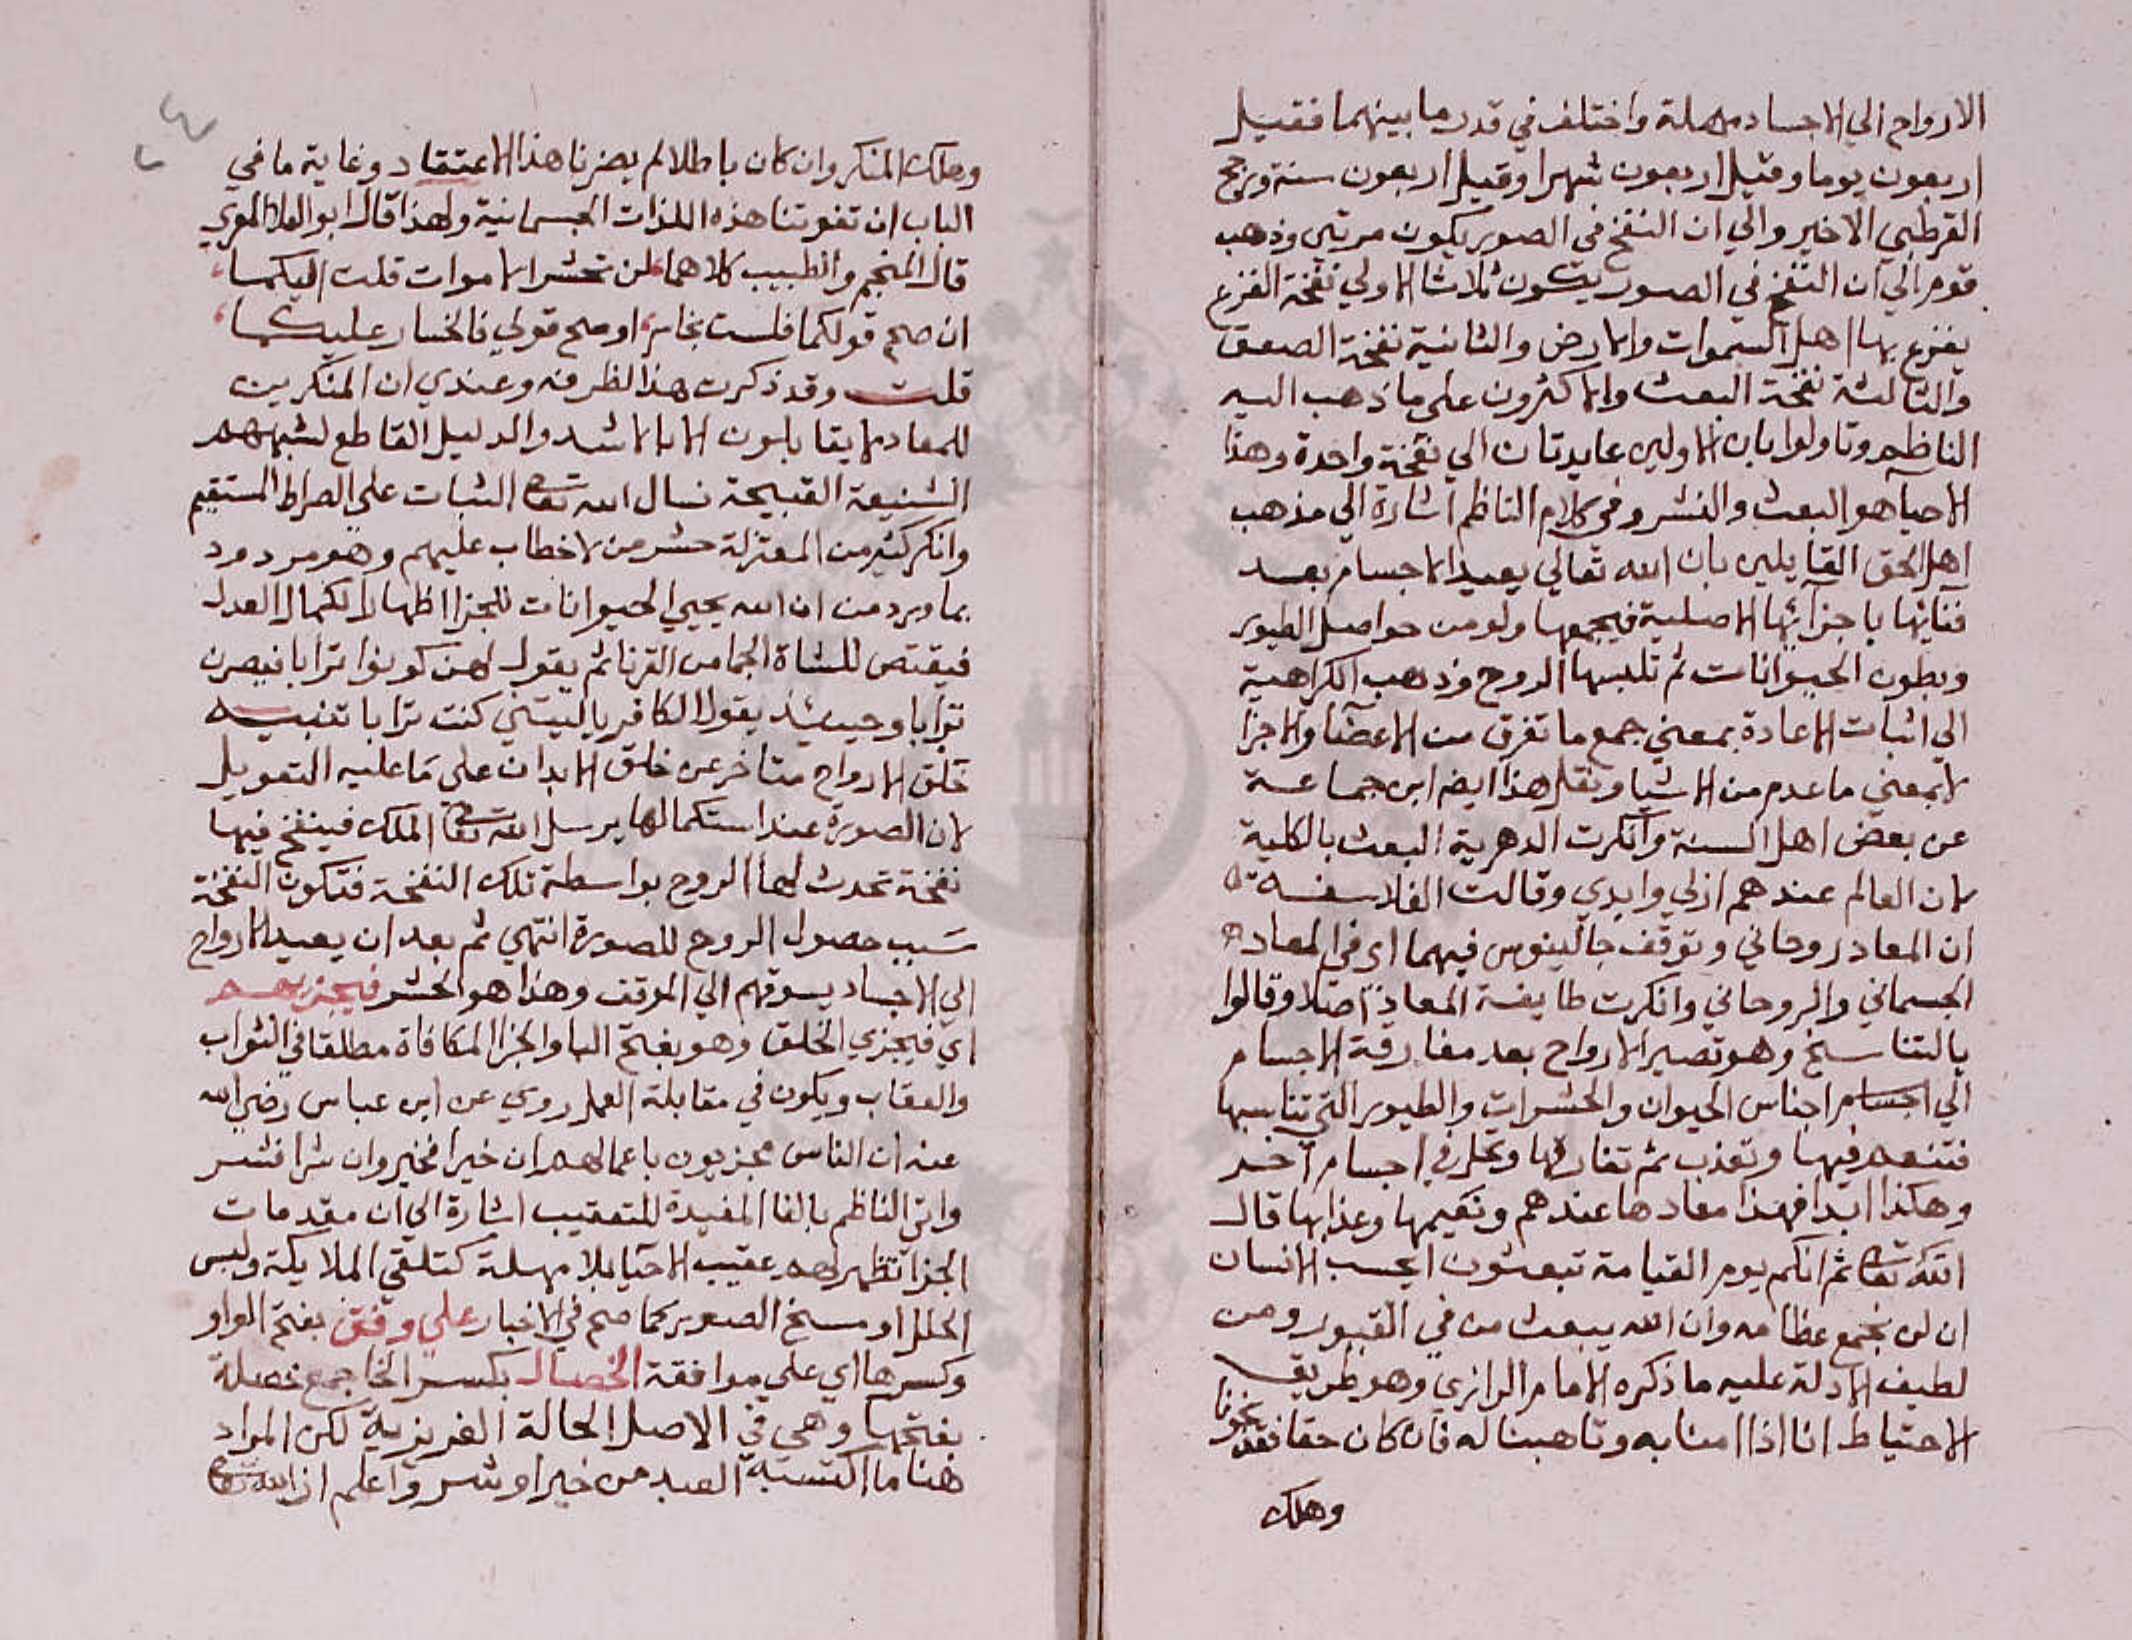 الارواح الي الاجساد مهلة واختلف في قدر ما بينهما فقيل
اربعون يوما وقيل اربعون شهرا وقيل اربعون سنة ورجح
القرطبي الاخير والي ان النفخ في الصور يكون مرتين وذهب
قوم الي ان النفخ في الصور يكون ثلاثا الاولي نفخة الفزع
يفزع بها اهل السموات والارض والثانية نفخة الصعق
والثالثة نفخة البعث والاكثرون علي ما ذهب اليه
الناظم وتاولوا بان الاولين عايدتان الي نفخة واحدة وهذا
الاحيا هو البعث والنشر وفي كلام الناظم اشارة الي مذهب
اهل الحق القايلين بان الله تعالي يعيد الاجسام بعد
فنائها باجزائها الاصلية فيجمعها ولو من حواصل الطيور
وبطون الحيوانات ثم تلبسها الروح وذهب الكراهية
الي اثبات الاعادة بمعني جمع ما تفرق من الاعضا والاجزا
لا بمعني ما عدم من الاشيا ونقل هذا ايضا ابن جماعة
عن بعض اهل السنة وانكرت الدهرية البعث بالكلية
لان العالم عندهم ازلي وابدي وقالت الفلاسفة
ان المعاد روحاني وتوقف جالينوس فيهما اي في المعاد
الجسماني والروحاني وانكرت طايفة المعاد اصلا وقالوا
بالتناسخ وهو تصير الارواح بعد مفارقة الاجسام
الي اجسام اجناس الحيوان والحشرات والطيور التي تناسبها
فتنعم فيها وتعذب ثم تفارقها وتحل في اجسام اخر
وهكذا ابدا فهذا معادها عندهم ونعيمها وعذابها قال
الله تعالي ثم انكم يوم القيامة تبعثون ايحسب الانسان
ان لن نجمع عظامه وان الله يبعث من في القبور ومن
لطيف الادلة عليه ما ذكره الامام الرازي وهو طريق
الاحتياط انا اذا امنا به وتاهبنا له فان كان حقا فقد نجونا
وهلك
وهلك المنكر وان كان باطلا لم يضرنا هذا الاعتقاد وغاية ما في
الباب ان تفوتنا هذه اللذات الجسمانية ولهذا قال ابو العلا المعري
قال المنجم والطبيب كلاهما لن تحشر الاموات قلت اليكما
ان صح قولكما فلست بخاسر او صح قولي فالخسار عليكما
قلت وقد ذكرت هذا لظرفه وعندي ان المنكرين
للمعاد لا يقابلون الا بالاشد والدليل القاطع لشبههم
الشنيعة القبيحة نسال الله تعالي الثبات علي الصراط المستقيم
وانكر كثير من المعتزلة حشر من لا خطاب عليهم وهو مردود
بما ورد من ان الله يحيي الحيوانات للجزا اظهارا لكمال العدل
فيقتص للشاة الجما من القرنا ثم يقول لهن كونوا ترابا فيصرن
ترابا وحينئذ يقول الكافر يا ليتني كنت ترابا تنبيه
خلق الارواح متاخر عن خلق الابدان علي ما عليه التعويل
لان الصورة عند استكمالها يرسل الله تعالي الملك فينفخ فيها
نفخة تحدث لها الروح بواسطة تلك النفخة فتكون النفخة
سبب حصول الروح للصورة انتهي ثم بعد ان يعيد الارواح
الي الاجساد يسوقهم الي الموقف وهذا هو الحشر فيجزيهم
اي فيجزي الخلق وهو بفتح اليا والجزا المكافاة مطلقا في الثواب
والعقاب ويكون في مقابلة العمل روي عن ابن عباس رضي الله
عنه ان الناس مجزيون باعمالهم ان خيرا فخير وان شرا فشر
واتي الناظم بالفا المفيدة للتعقيب اشارة الي ان مقدمات
الجزا تظهر لهم عقيب الاحيا بلا مهلة كتلقي الملايكة ولبس
الحلل او مسخ الصور كما صح في الاخبار علي وفق بفتح الواو
وكسرها اي علي موافقة الخصال بكسر الخا جمع خصلة
بفتحها وهي في الاصل الحالة الغريزية لكن المراد
هنا ما اكتسبه العبد من خير او شر واعلم ان الله تعالي